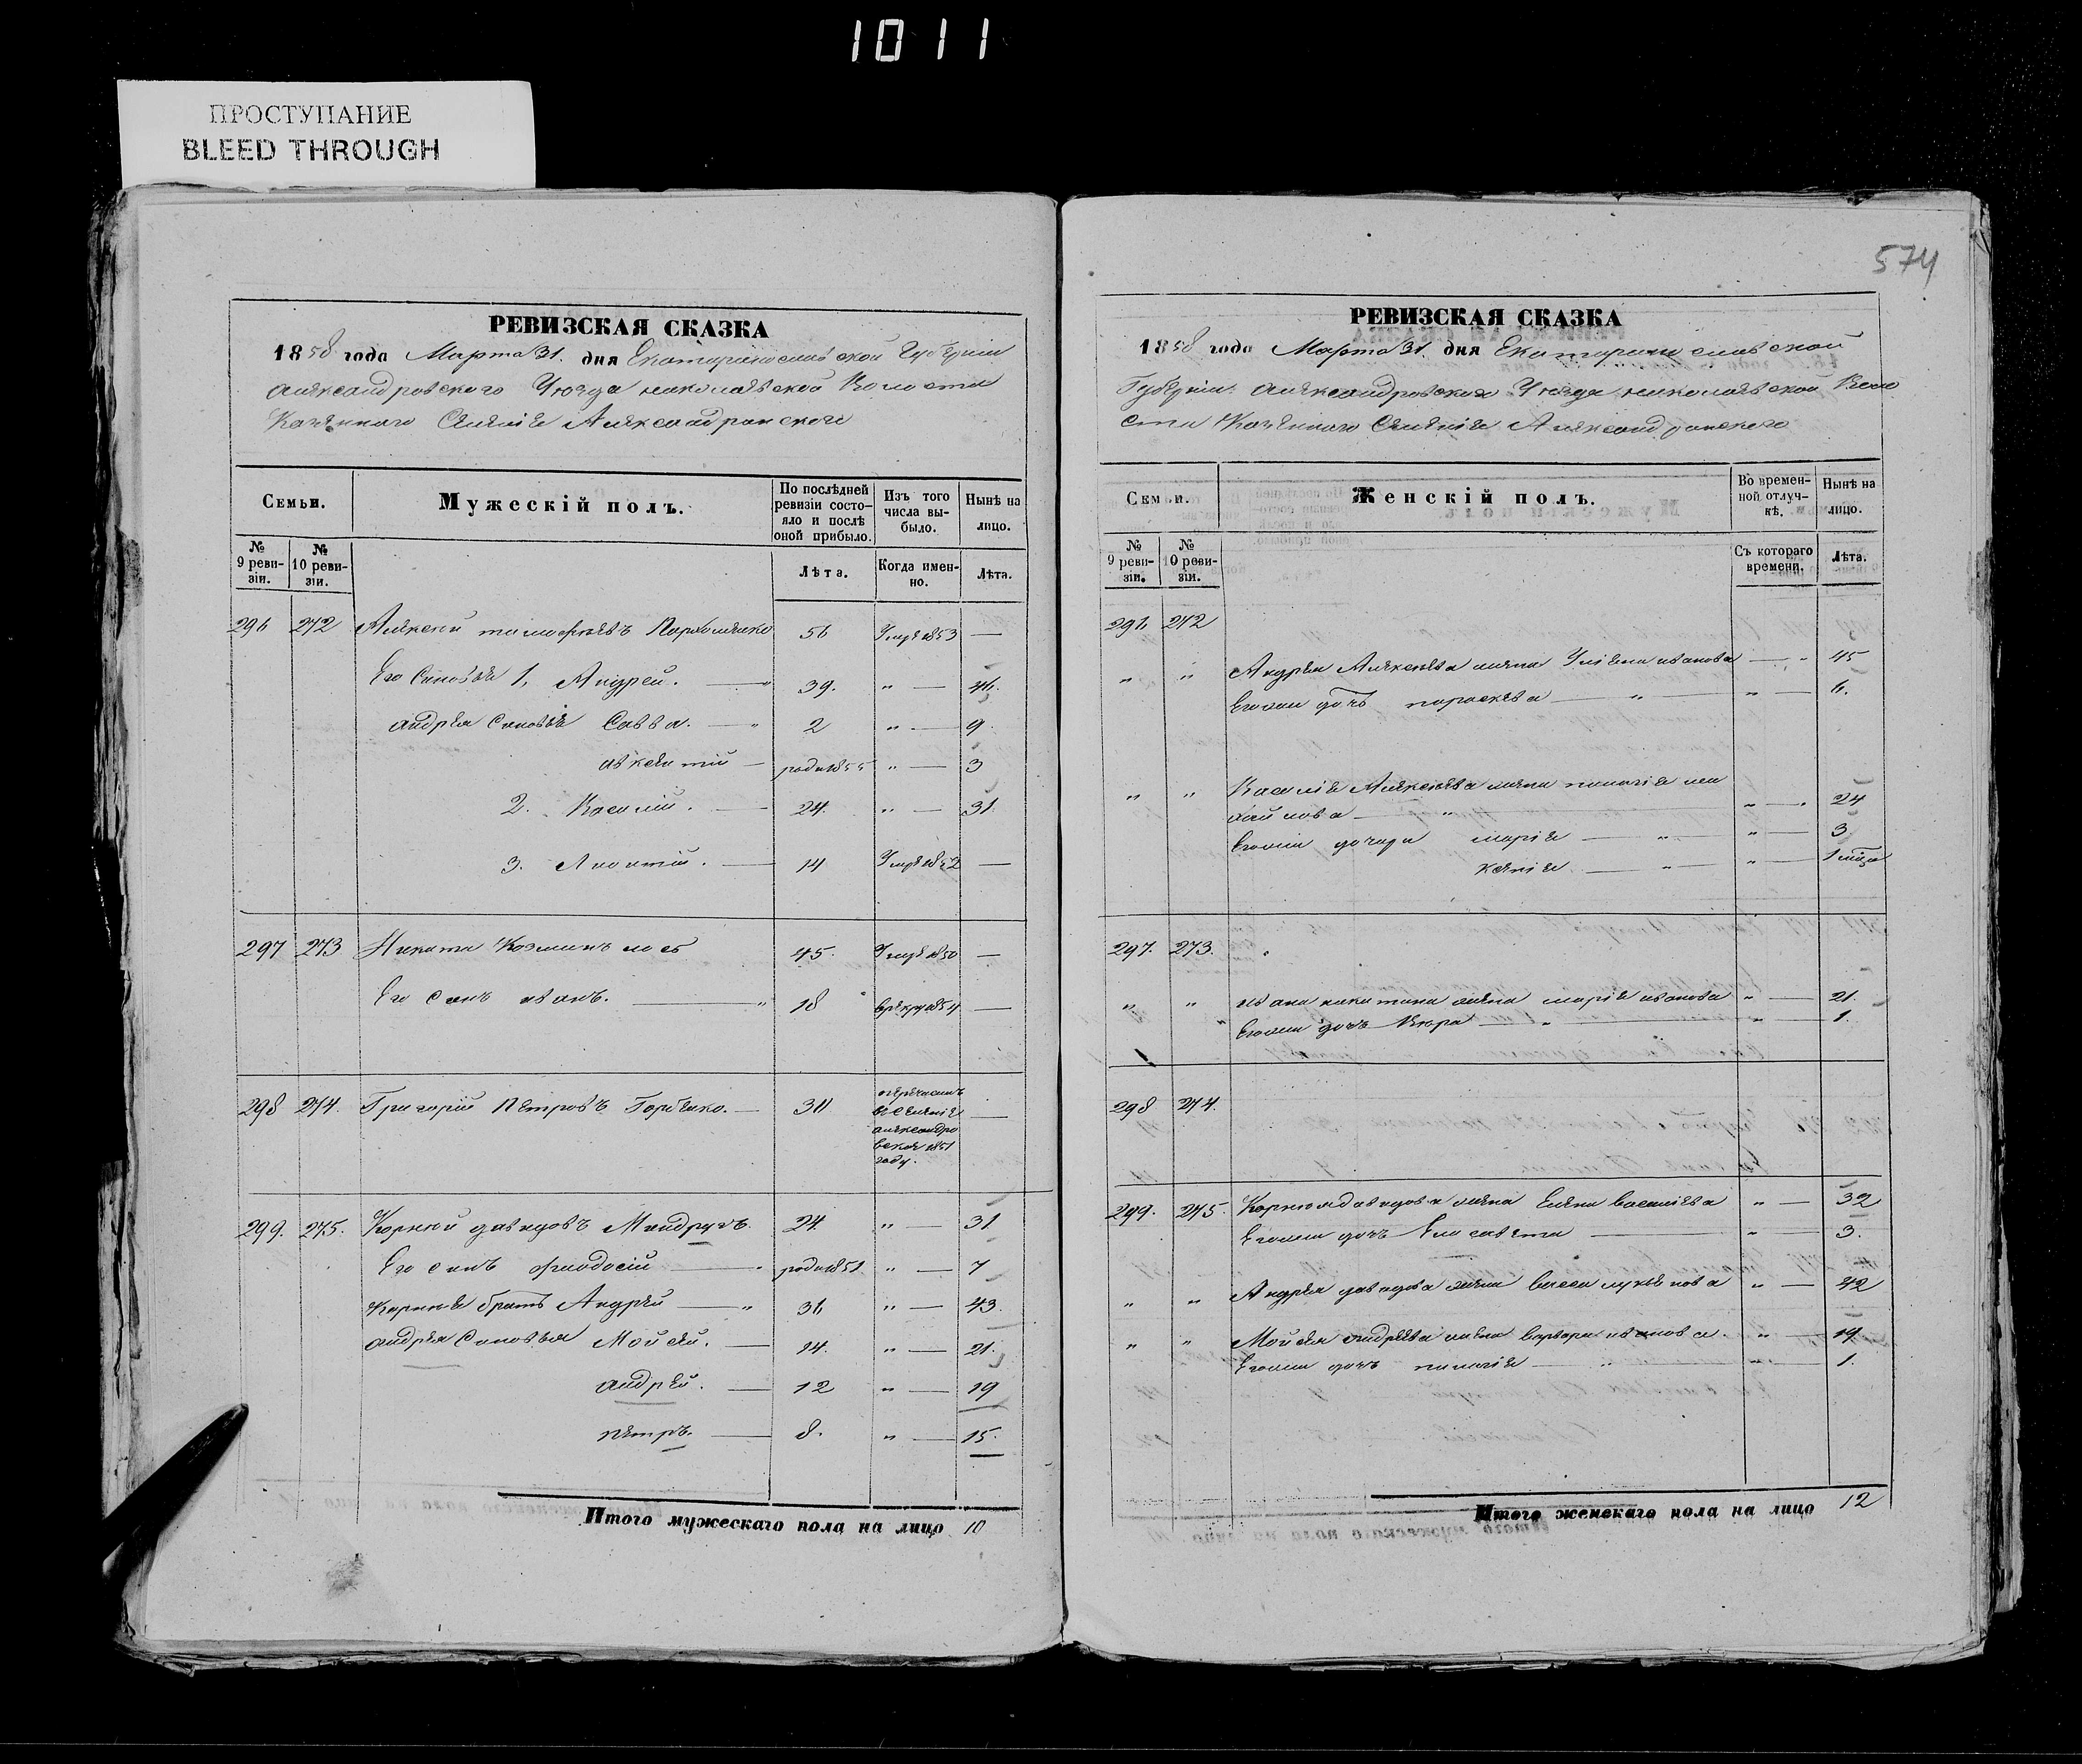 1011
ПРОСТУПАНИЕ
BLEED THROUGH
574
РЕВИЗСКАЯ СКАЗКА
1858 года Марта 31. дня Екатеринославской Губернии
Александровского Уезда Николаевской Волости
Казенного Селения Александровского
Семьи.
Мужескій полъ.
По послѣдней ревизіи состояло и послѣ оной прибыло.
Изъ того числа выбыло.
Нынѣ на лицо.
№ 9 ревизіи.
№ 10 ревизіи.
Лѣта.
Когда именно.
Лѣта.
296 272 Алексей тимофеевъ Пархоменко 56 Умре 1853 —
Его Сыновья 1, Андрей. — 39. " — 46.
андрея Сыновья Савва. — " 2 " — 9
— роди 1855 " — 3
2. Василий. — 24. " — 31.
3. Леонтий. — 14 Умре 1852 —
297 273 Никита Козминъ 45. Умре 1850 —
Его Сынъ иванъ. — " 18 врекру 1854 —
298 274. Григорий Петровъ Горбенко. — 30 перечисленъ
в Селение
александро
вская 1851
году.
299. 275. Корней давидовъ 24 " — 31
Его сынъ феодосий — роди 1851 " — 7
Корнея братъ Андрей — " 36 " — 43.
андрея Сыновья Мойсей. — 14. " — 21.
андрей. — 12 " — 19
петръ. — 8. " — 15.
Итого мужескаго пола на лицо 10
РЕВИЗСКАЯ СКАЗКА
1858 года Марта 31. дня Екатеринославской
Губернии Александровская Уезда николаевской Воло
сти Казенного Селения Александровского
Семьи.
Женскій полъ.
Во временной отлучкѣ.
Нынѣ на лицо.
№ 9 ревизіи.
№ 10 ревизіи.
Съ котораго времени.
Лѣта.
296 272
" " Андрея Алексеева жена Улияна иванова — " 45
Егоже дочь параскева — " " — 6.
" " Василия Алексеева жена пелагия ми
хайлова — " " — 24
Егоже дочери мария — " " — 3
ксения — " " — 1 мѣсяц
297. 273.
" " ивана никитина жена мария иванова " — 21.
" Егоже дочь — " — " — 1.
298 274.
299. 275. Корнея давидова жена Елена василиева " — 32
Егоже дочь Елисавета — " — 3.
" " Андрея давидова жена васса лукьянова " — 42
" " Мойсея андреева жена варвара иванова. " — 19.
Егоже дочь пелагия — " " — 1.
Итого женскаго пола на лицо 12